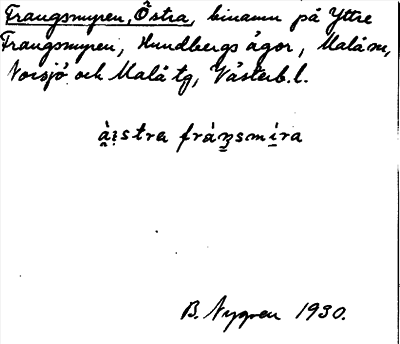 Frangsmyren, Östra, binamn på Yttre
Frangsmyren, Hundbergs ägor, Malå sn,
Norsjö och Malå tg, Västerb. l.
àistra fráŋsmíra
B. Nygren 1930.